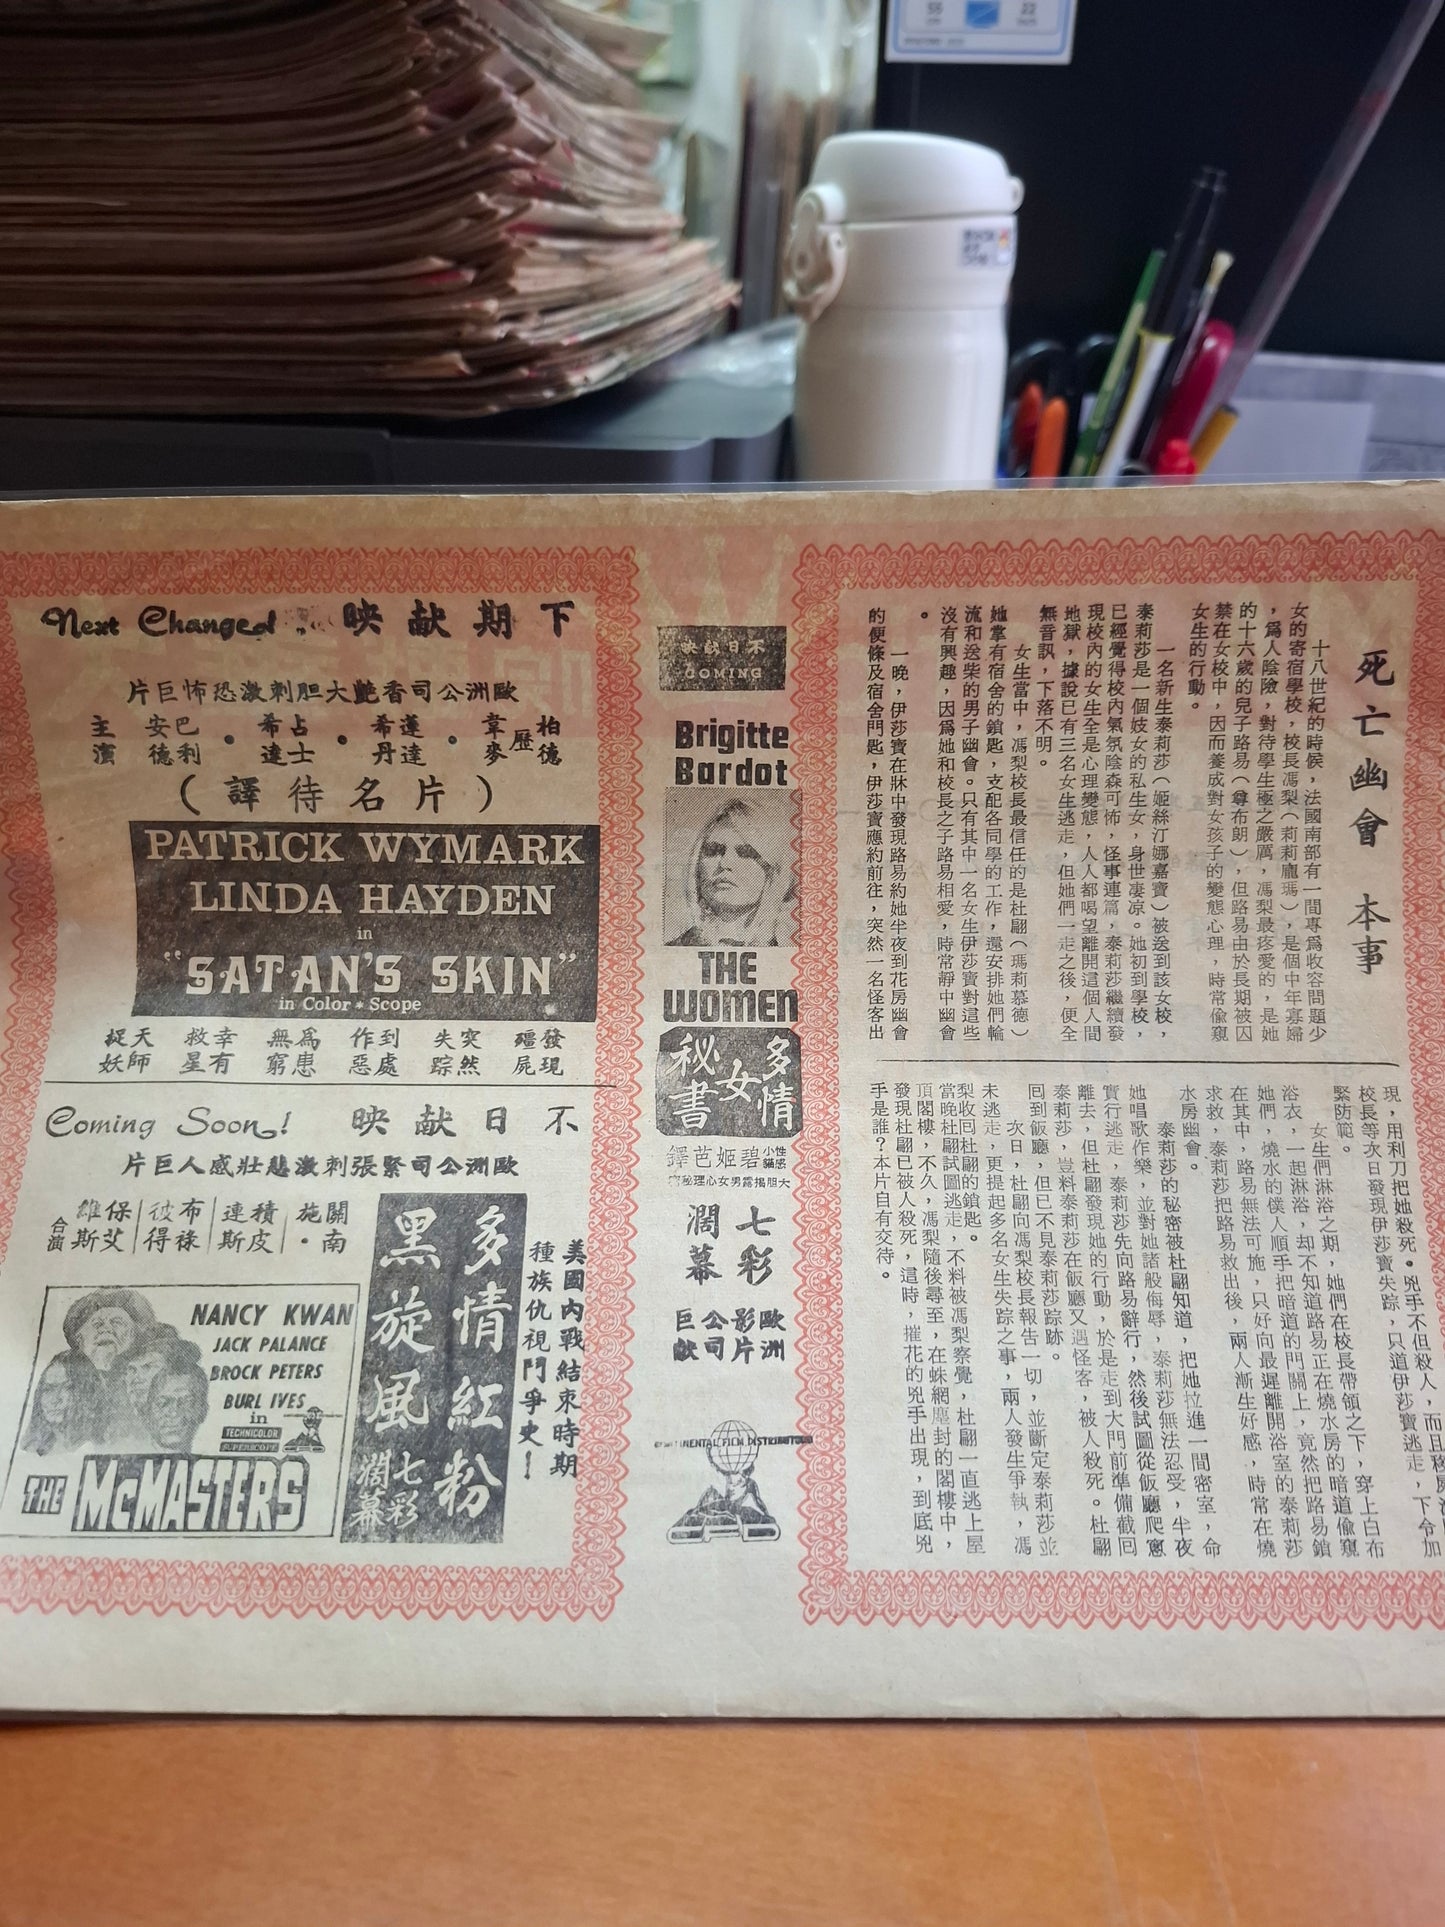 Next Changed
下期献映
歐洲公司香艷大胆刺激恐怖巨片
柏德
韋麥歷
蓮達
希丹
占士
希達
巴利
安德
主演
(片名待譯)
PATRICK WYMARK
LINDA HAYDEN
in
"SATAN'S SKIN"
in Color * Scope
發現殭屍
突然失踪
到處作惡
為患無窮
幸有救星
天師捉妖
Coming Soon!
不日献映
歐洲公司緊張刺激悲壯感人巨片
關南
施
積皮
連斯
布祿
彼得
保艾
維斯
合演
美國內戰結束時期
種族仇視鬥爭史!
多情紅粉
黑旋風
七彩
濶幕
NANCY KWAN
JACK PALANCE
BROCK PETERS
BURL IVES
in
TECHNICOLOR
SUPERSCOPE
THE McMASTERS
不日献映
COMING
Brigitte
Bardot
THE
WOMEN
多情
女
秘書
性感
小貓
碧姬芭鐸
大胆揭露男女心理秘密
七彩
濶幕
歐洲
影片
公司
巨献
CONTINENTAL FILM DISTRIBUTORS
死亡幽會 本事
十八世紀的時候,法國南部有一間專為收容問題少
女的寄宿學校,校長馮梨(莉莉龐瑪),是個中年寡婦
,為人陰險,對待學生極之嚴厲,馮梨最疼愛的,是她
的十六歲的兒子路易(尊布朗),但路易由於長期被囚
禁在女校中,因而養成對女孩子的變態心理,時常偷窺
女生的行動。
一名新生泰莉莎(姬絲汀娜嘉寶)被送到該女校,
泰莉莎是一個妓女的私生女,身世凄凉。她初到學校,
已經覺得校內氣氛陰森可怖,怪事連篇,泰莉莎繼續發
現校內的女生全是心理變態,人人都喝望離開這個人間
地獄,據說已有三名女生逃走,但她們一走之後,便全
無音訊,下落不明。
女生當中,馮梨校長最信任的是杜翩(瑪莉慕德)
她掌有宿舍的鎖匙,支配各同學的工作,還安排她們輪
流和送柴的男子幽會。只有其中一名女生伊莎寶對這些
沒有興趣,因為她和校長之子路易相愛,時常靜中幽會
。
一晚,伊莎寶在牀中發現路易約她半夜到花房幽會
的便條及宿舍門匙,伊莎寶應約前往,突然一名怪客出
現,用利刀把她殺死。兇手不但殺人,而且
校長等次日發現伊莎寶失踪,只道伊莎寶逃走,下令加
緊防範。
女生們淋浴之期,她們在校長帶領之下,穿上白布
浴衣,一起淋浴,却不知道路易正在燒水房的暗道偷窺
她們,燒水的僕人順手把暗道的門關上,竟然把路易鎖
在其中,路易無法可施,只好向最遲離開浴室的泰莉莎
求救,泰莉莎把路易救出後,兩人漸生好感,時常在燒
水房幽會。
泰莉莎的秘密被杜翩知道,把她拉進一間密室,命
她唱歌作樂,並對她諸般侮辱,泰莉莎無法忍受,半夜
實行逃走,泰莉莎先向路易辭行,然後試圖從飯廳爬窗
離去,但杜翩發現她的行動,於是走到大門前準備截回
泰莉莎,豈料泰莉莎在飯廳又遇怪客,被人殺死。杜翩
回到飯廳,但已不見泰莉莎踪跡。
次日,杜翩向馮梨校長報告一切,並斷定泰莉莎並
未逃走,更提起多名女生失踪之事,兩人發生爭執,馮
梨收回杜翩的鎖匙。
當晚杜翩試圖逃走,不料被馮梨察覺,杜翩一直逃上屋
頂閣樓,不久,馮梨隨後尋至,在蛛網塵封的閣樓中,
發現杜翩已被人殺死,這時,摧花的兇手出現,到底兇
手是誰?本片自有交待。